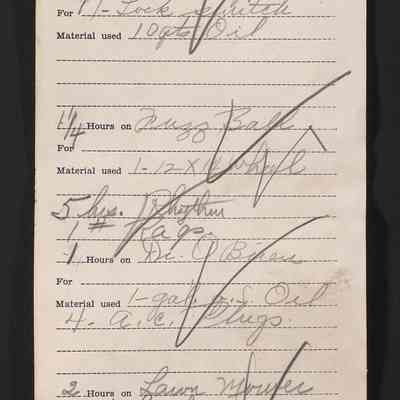 For 11- Lock switch
Material used 10 qts Oil
1 1/4 Hours on Fuzz Ball
For
Material used 1-12 X 14 wheel
5 hrs. Rhythm
1 # Rags.
1 Hours on Dr. O Brian
For
Material used 1-gal. Oil
4. a.c. Plugs.
2 Hours on Lawn Mower